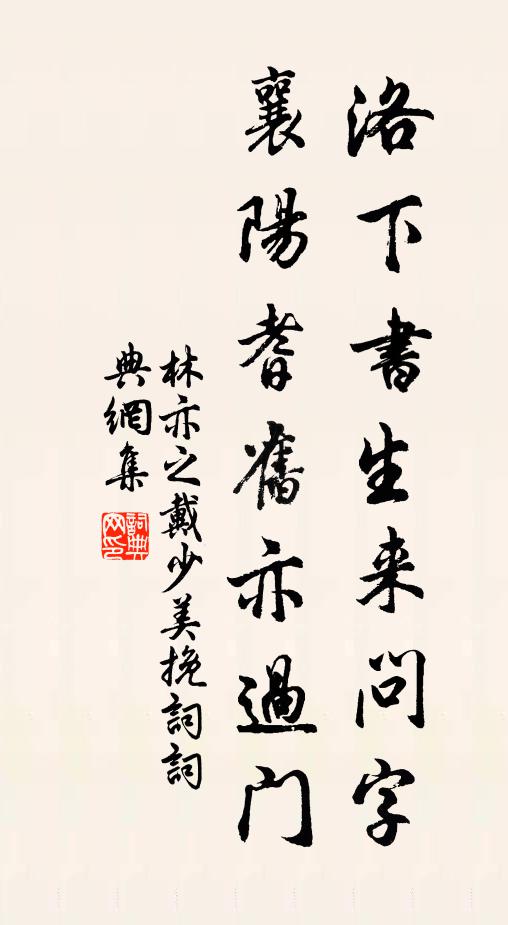 洛下書生来問字
襄陽耆舊亦過门
林亦之戴少美挽詞詞
典網集
詞典網印